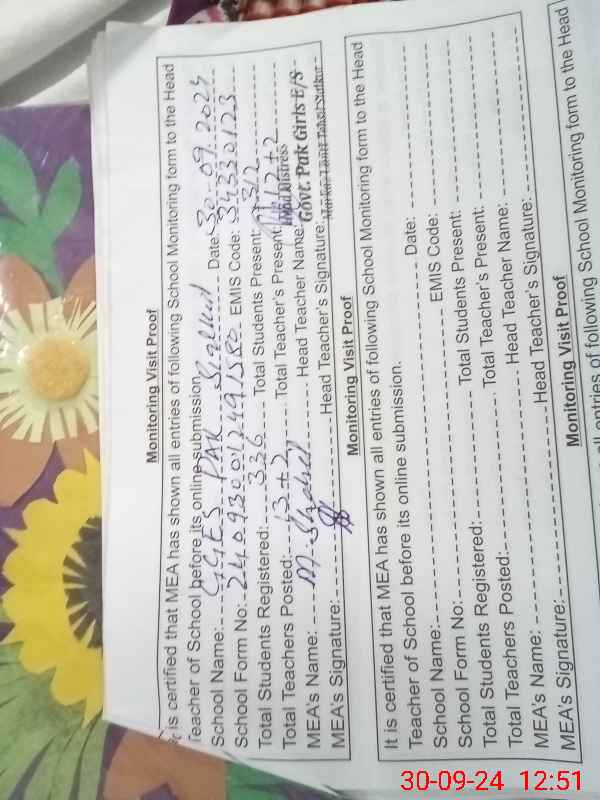 Monitoring Visit Proof
is certified that MEA has shown all entries of following School Monitoring form to the Head
Teacher of School before its online submission.
School Name: GGES PAK Date: 30.09.202
School Form No: EMIS Code: 34330123
Total Students Registered: 336 Total Students Present: 312
Total Teachers Posted: 13+2 Total Teacher's Present: 12+2
MEA's Name: M. Head Teacher Name:
Head Mistress
Govt. Pak Girls E/S
MEA's Signature: Head Teacher's Signature:
Monitoring Visit Proof
It is certified that MEA has shown all entries of following School Monitoring form to the Head
Teacher of School before its online submission.
School Name: Date:
School Form No: EMIS Code:
Total Students Registered: Total Students Present:
Total Teachers Posted: Total Teacher's Present:
MEA's Name: Head Teacher Name:
MEA's Signature: Head Teacher's Signature:
Monitoring Visit Proof
all entries of following School Monitoring form to the Head
30-09-24 12:51